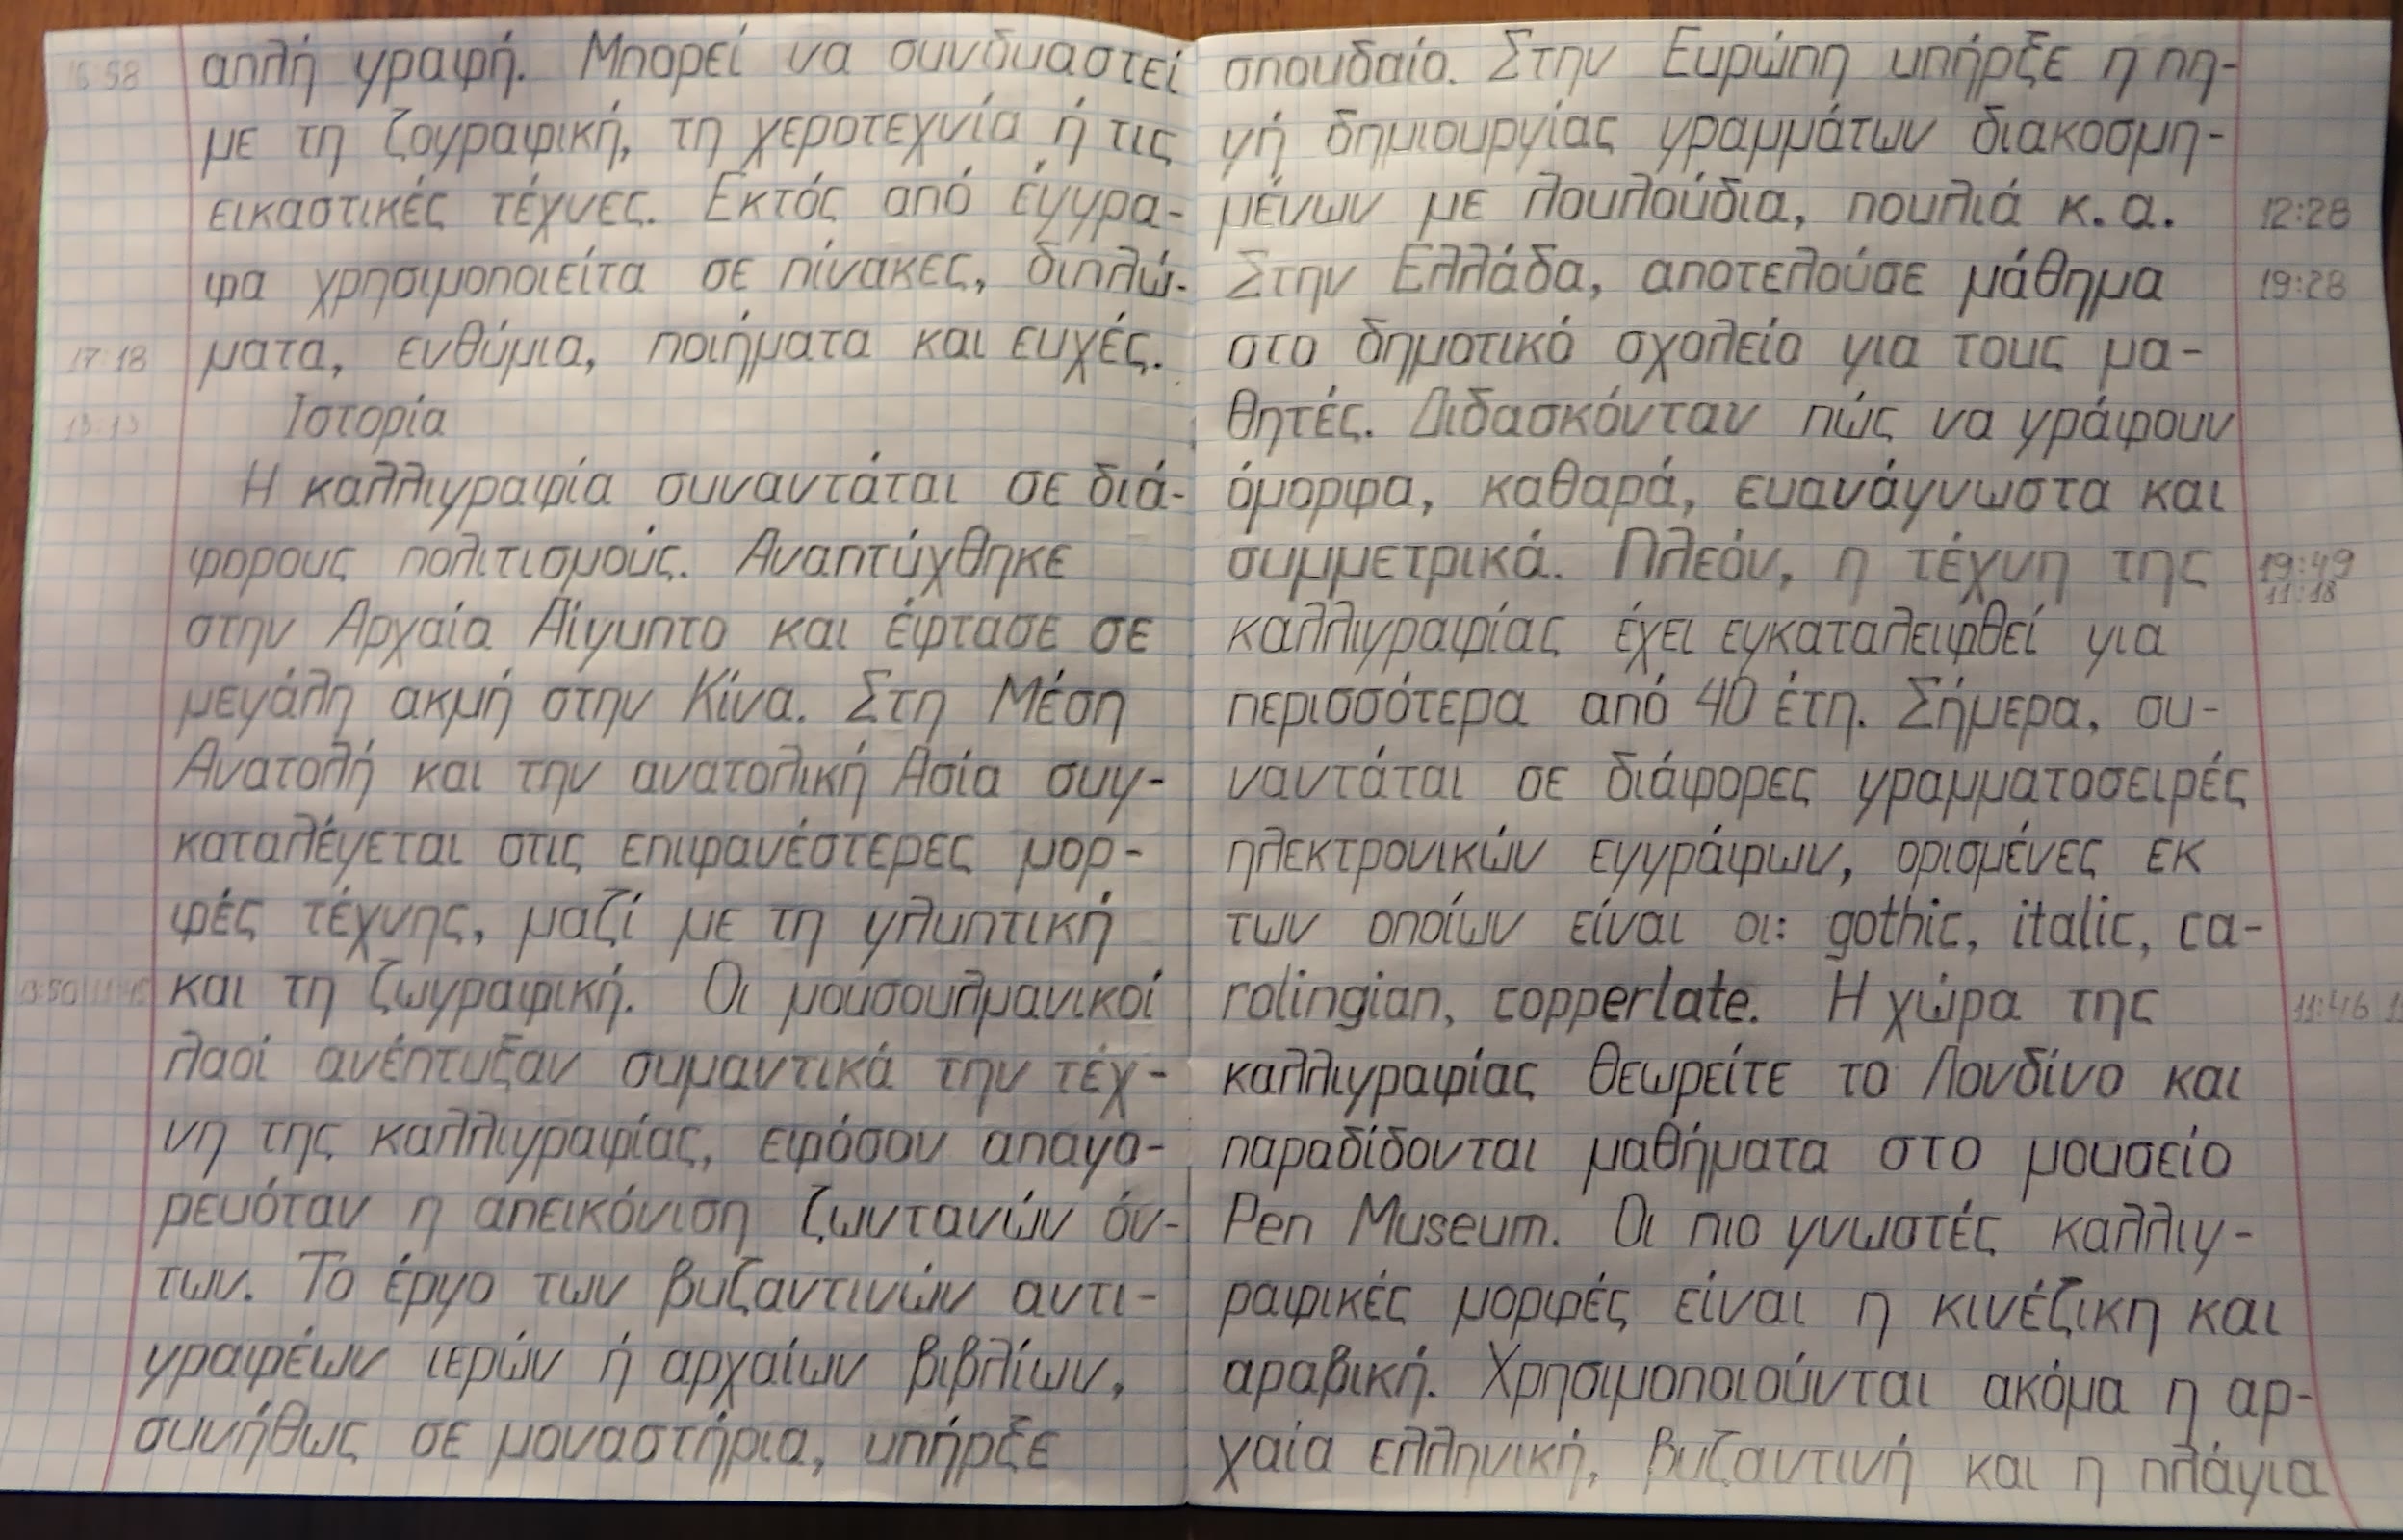 16:58
απλή γραφή. Μπορεί να συνδυαστεί
με τη ζογραφική, τη χεροτεχνία ή τις
εικαστικές τέχνες. Εκτός από έγγρα-
φα χρησιμοποιείτα σε πίνακες, διπλώ-
17:18
ματα, ενθύμια, ποιήματα και ευχές.
13:13
Ιστορία
Η καλλιγραφία συναντάται σε διά-
φορους πολιτισμούς. Αναπτύχθηκε
στην Αρχαία Αίγυπτο και έφτασε σε
μεγάλη ακμή στην Κίνα. Στη Μέση
Ανατολή και την ανατολική Ασία συγ-
καταλέγεται στις επιφανέστερες μορ-
φές τέχνης, μαζί με τη γλυπτική
και τη ζωγραφική. Οι μουσουλμανικοί
λαοί ανέπτυξαν συμαντικά την τέχ-
νη της καλλιγραφίας, εφόσον απαγο-
ρευόταν η απεικόνιση ζωντανών όν-
των. Το έργο των βυζαντινών αντι-
γραφέων ιερών ή αρχαίων βιβλίων,
συνήθως σε μοναστήρια, υπήρξε
σπουδαίο. Στην Ευρώπη υπήρξε η πη-
γή δημιουργίας γραμμάτων διακοσμη-
μένων με λουλούδια, πουλιά κ.α.
12:28
Στην Ελλάδα, αποτελούσε μάθημα
19:28
στο δημοτικό σχολείο για τους μα-
θητές. Διδασκόνταν πώς να γράφουν
όμορφα, καθαρά, ευανάγνωστα και
συμμετρικά. Πλεόν, η τέχνη της
19:49
11:18
καλλιγραφίας έχει εγκαταλειφθεί για
περισσότερα από 40 έτη. Σήμερα, συ-
ναντάται σε διάφορες γραμματοσειρές
ηλεκτρονικών εγγράφων, ορισμένες εκ
των οποίων είναι οι: gothic, italic, ca-
rolingian, copperlate. Η χώρα της
11:46
καλλιγραφίας θεωρείτε το Λονδίνο και
παραδίδονται μαθήματα στο μουσείο
Pen Museum. Οι πιο γνωστές καλλιγ-
ραφικές μορφές είναι η κινέζικη και
αραβική. Χρησιμοποιούνται ακόμα η αρ-
χαία ελληνική, βυζαντινή και η πλάγια